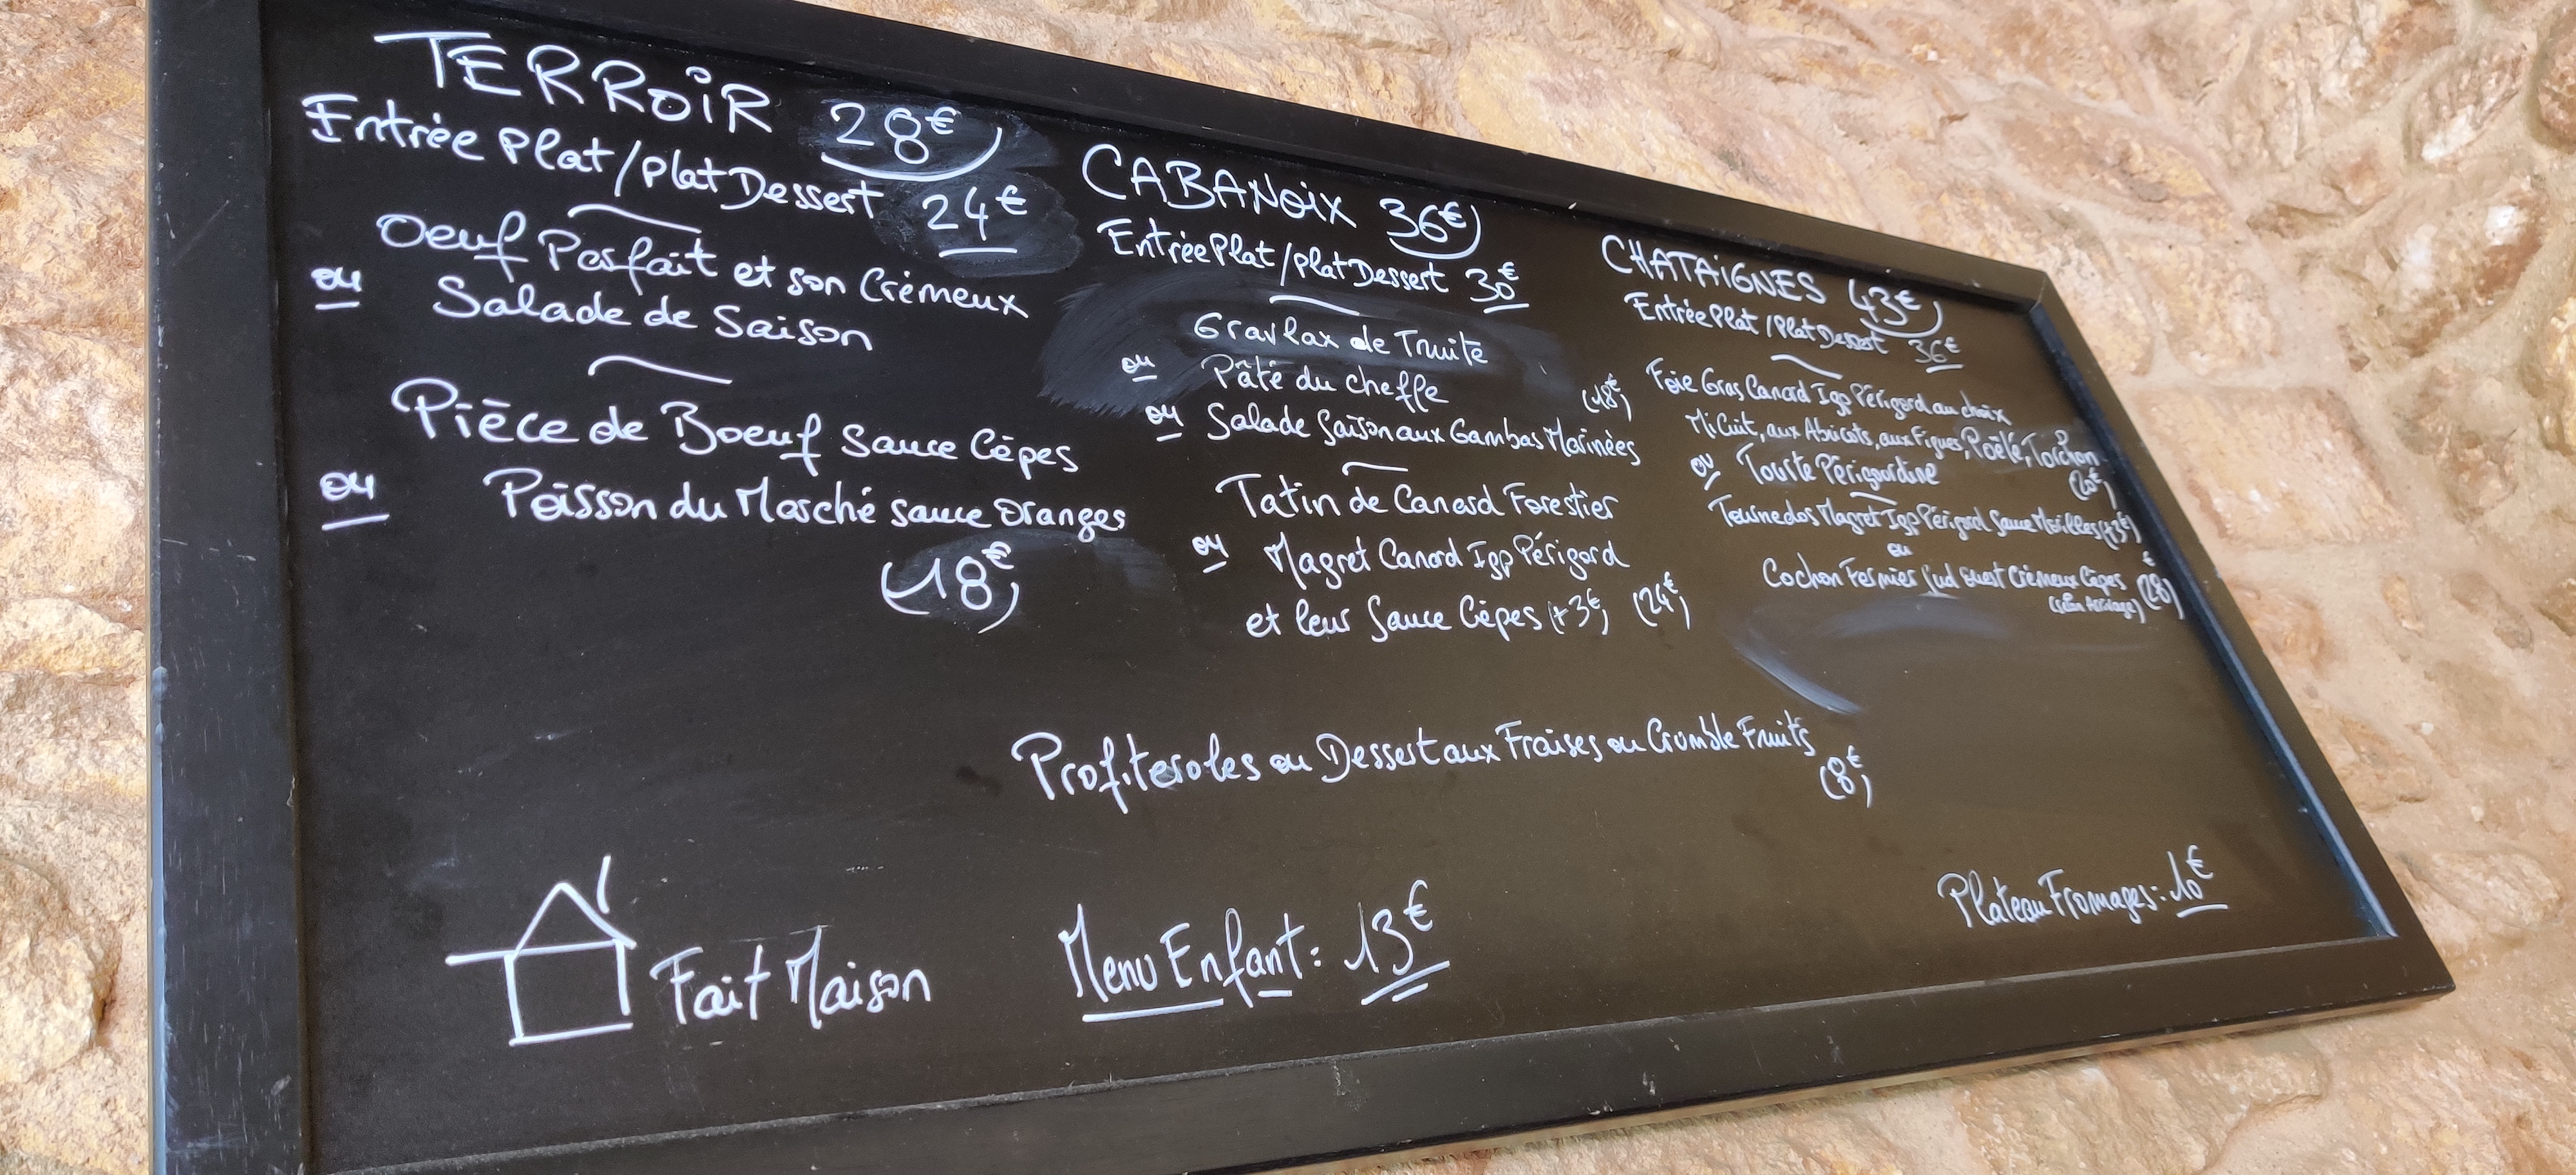 TERROIR 28€
Entrée Plat/plat Dessert 24€
Oeuf Parfait et son Crémeux
ou Salade de Saison
Pièce de Boeuf Sauce Cèpes
ou Poisson du Marché sauce Oranges
(18€)
CABANOIX 36€
Entrée Plat/plat Dessert 30€
Gravlax de Truite
ou Pâté du cheffe
(18€)
ou Salade Saison aux Gambas Marinées
Tatin de Canard Forestier
ou Magret Canard Igp Périgord
et leur Sauce Cèpes (+3€) (24€)
CHATAIGNES 43€
Entrée Plat/Plat Dessert 36€
Foie Gras Canard Igp Périgord au choix
Mi Cuit, aux Abricots, aux Figues, Poêlé, Torchon
ou Tourte Périgourdine (20€)
Tournedos Magret Igp Périgord Sauce Morilles (+3€)
ou
Cochon Fermier Sud ouest Crémeux Cèpes (28€)
(selon Arrivage)
Profiteroles ou Dessert aux Fraises ou Crumble Fruits
(8€)
Plateau Fromages : 10€
Fait Maison
Menu Enfant : 13€